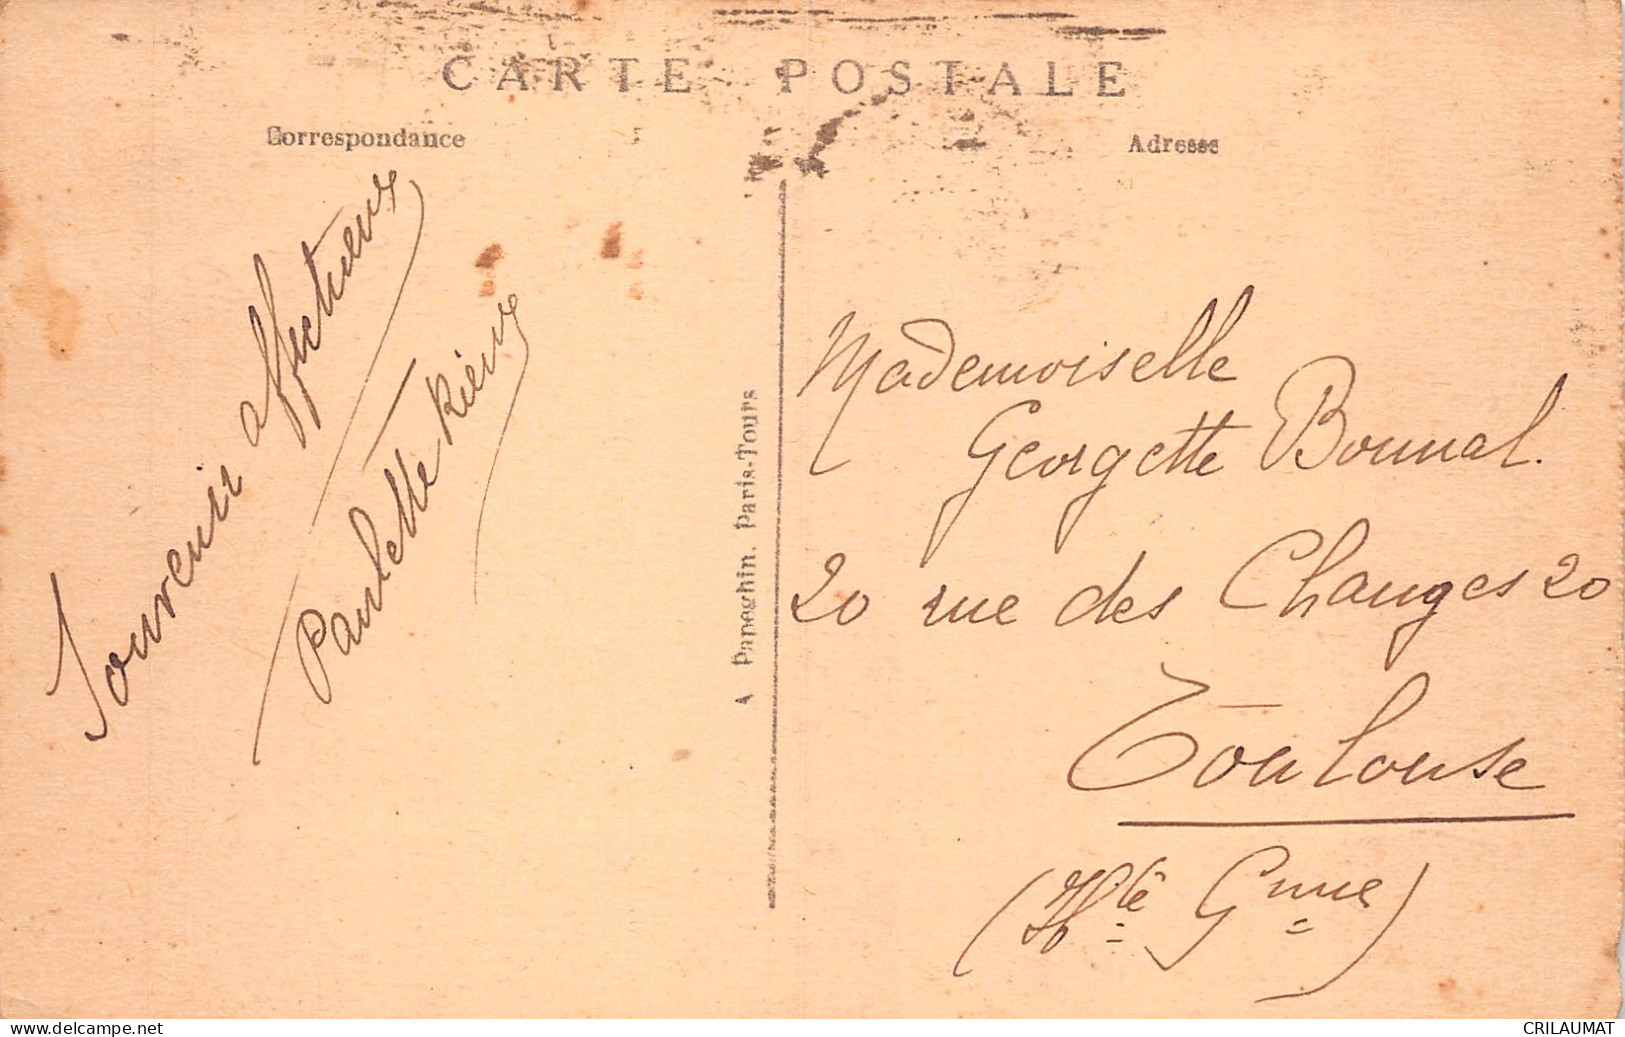 CARTE POSTALE
Correspondance
Adresse
Souvenir affectueux
Paulette Rieux
A Papeghin. Paris-Tours
Mademoiselle
Georgette Bonnal.
20 rue des Changes 20
Toulouse
(Hte Gnne)
www.delcampe.net
CRILAUMAT